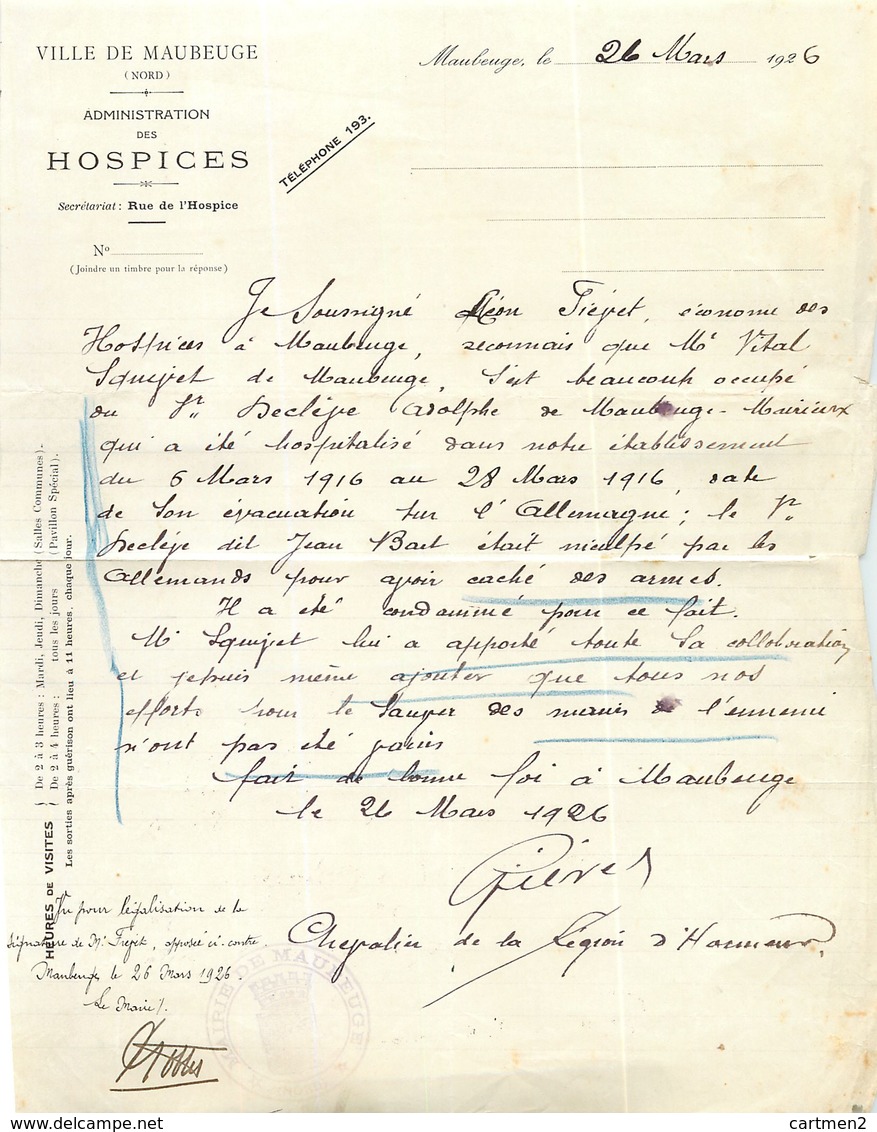 VILLE DE MAUBEUGE
(NORD)
ADMINISTRATION
DES
HOSPICES
Secrétariat : Rue de l'Hospice
TÉLÉPHONE 193.
Maubeuge, le 26 Mars 1926
N°
(Joindre un timbre pour la réponse)
Je Soussigné Léon Fiévet, économe des
Hospices à Maubeuge, reconnais que Mr Vital
Squivet de Maubeuge, s'est beaucoup occupé
du Sr Declève Adolphe de Maubeuge-
qui a été hospitalisé dans notre établissement
du 6 Mars 1916 au 28 Mars 1916, date
de son évacuation sur l'Allemagne ; le Sr
Declève dit Jean Bart était inculpé par les
Allemands pour avoir caché des armes.
Il a été condamné pour ce fait.
Mr Squivet lui a apporté toute sa colloboration
et je puis même ajouter que tous nos
efforts pour le sauver des mains de l'ennemi
n'ont pas été
fait de bonne foi à Maubeuge
le 26 Mars 1926
Fiévet
Chevalier de la Légion d'Honneur
HEURES DE VISITES
De 2 à 3 heures : Mardi, Jeudi, Dimanche (Salles Communes).
De 2 à 4 heures : tous les jours (Pavillon Spécial).
Les sorties après guérison ont lieu à 11 heures, chaque jour.
Vu pour légalisation de la
signature de Mr Fiévet, apposée ci-contre.
Maubeuge le 26 Mars 1926.
Le Maire,
MAIRIE DE MAUBEUGE
cartmen2